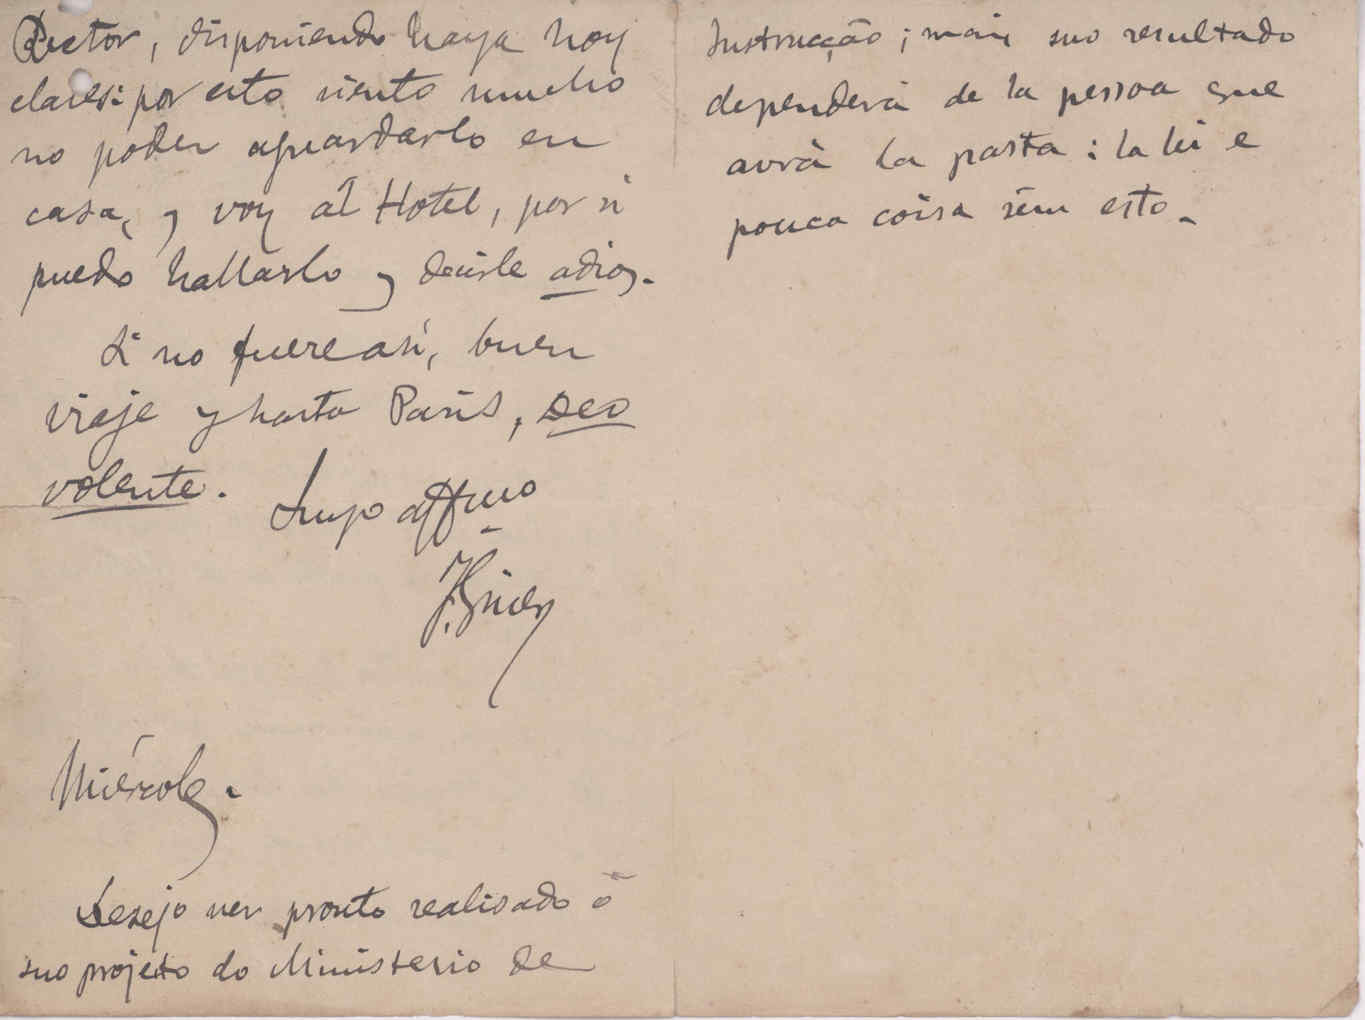 Rector, disponiendo haya hoy
clases: por esto siento mucho
no poder aguardarlo en
casa, y voy al Hotel, por si
puedo hallarlo y decirle adios.
Si no fuere así, buen
viaje y hasta Paris, Deo
volente.
Suyo affmo
F. Giner
Miércoles.
Desejo ver pronto realisado o
suo projeto do Ministerio de
Instrucção; mais suo resultado
dependerá de la pessoa que
avrá la pasta: la lei e
pouca coisa sem esto.